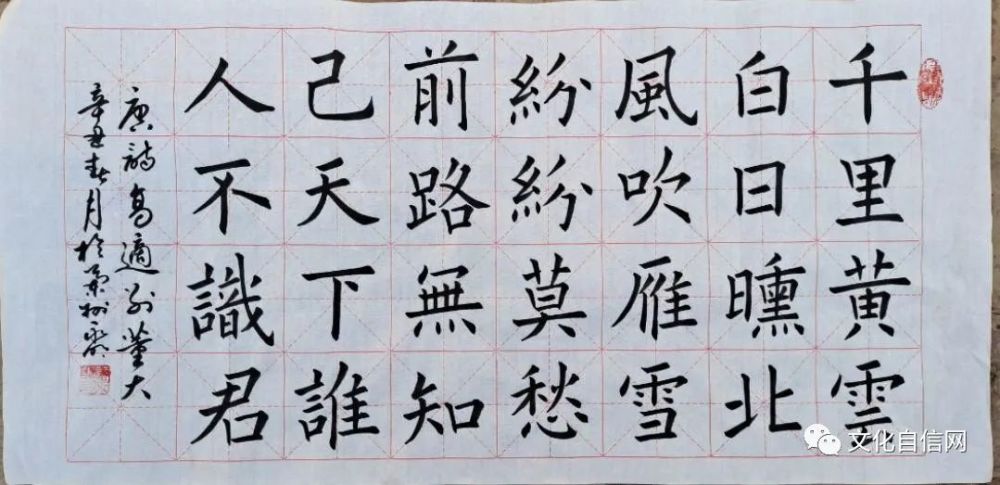 千里黄雲
白日曛北
風吹雁雪
紛紛莫愁
前路無知
己天下誰
人不識君
唐詩高適別董大
辛丑春月於
文化自信网